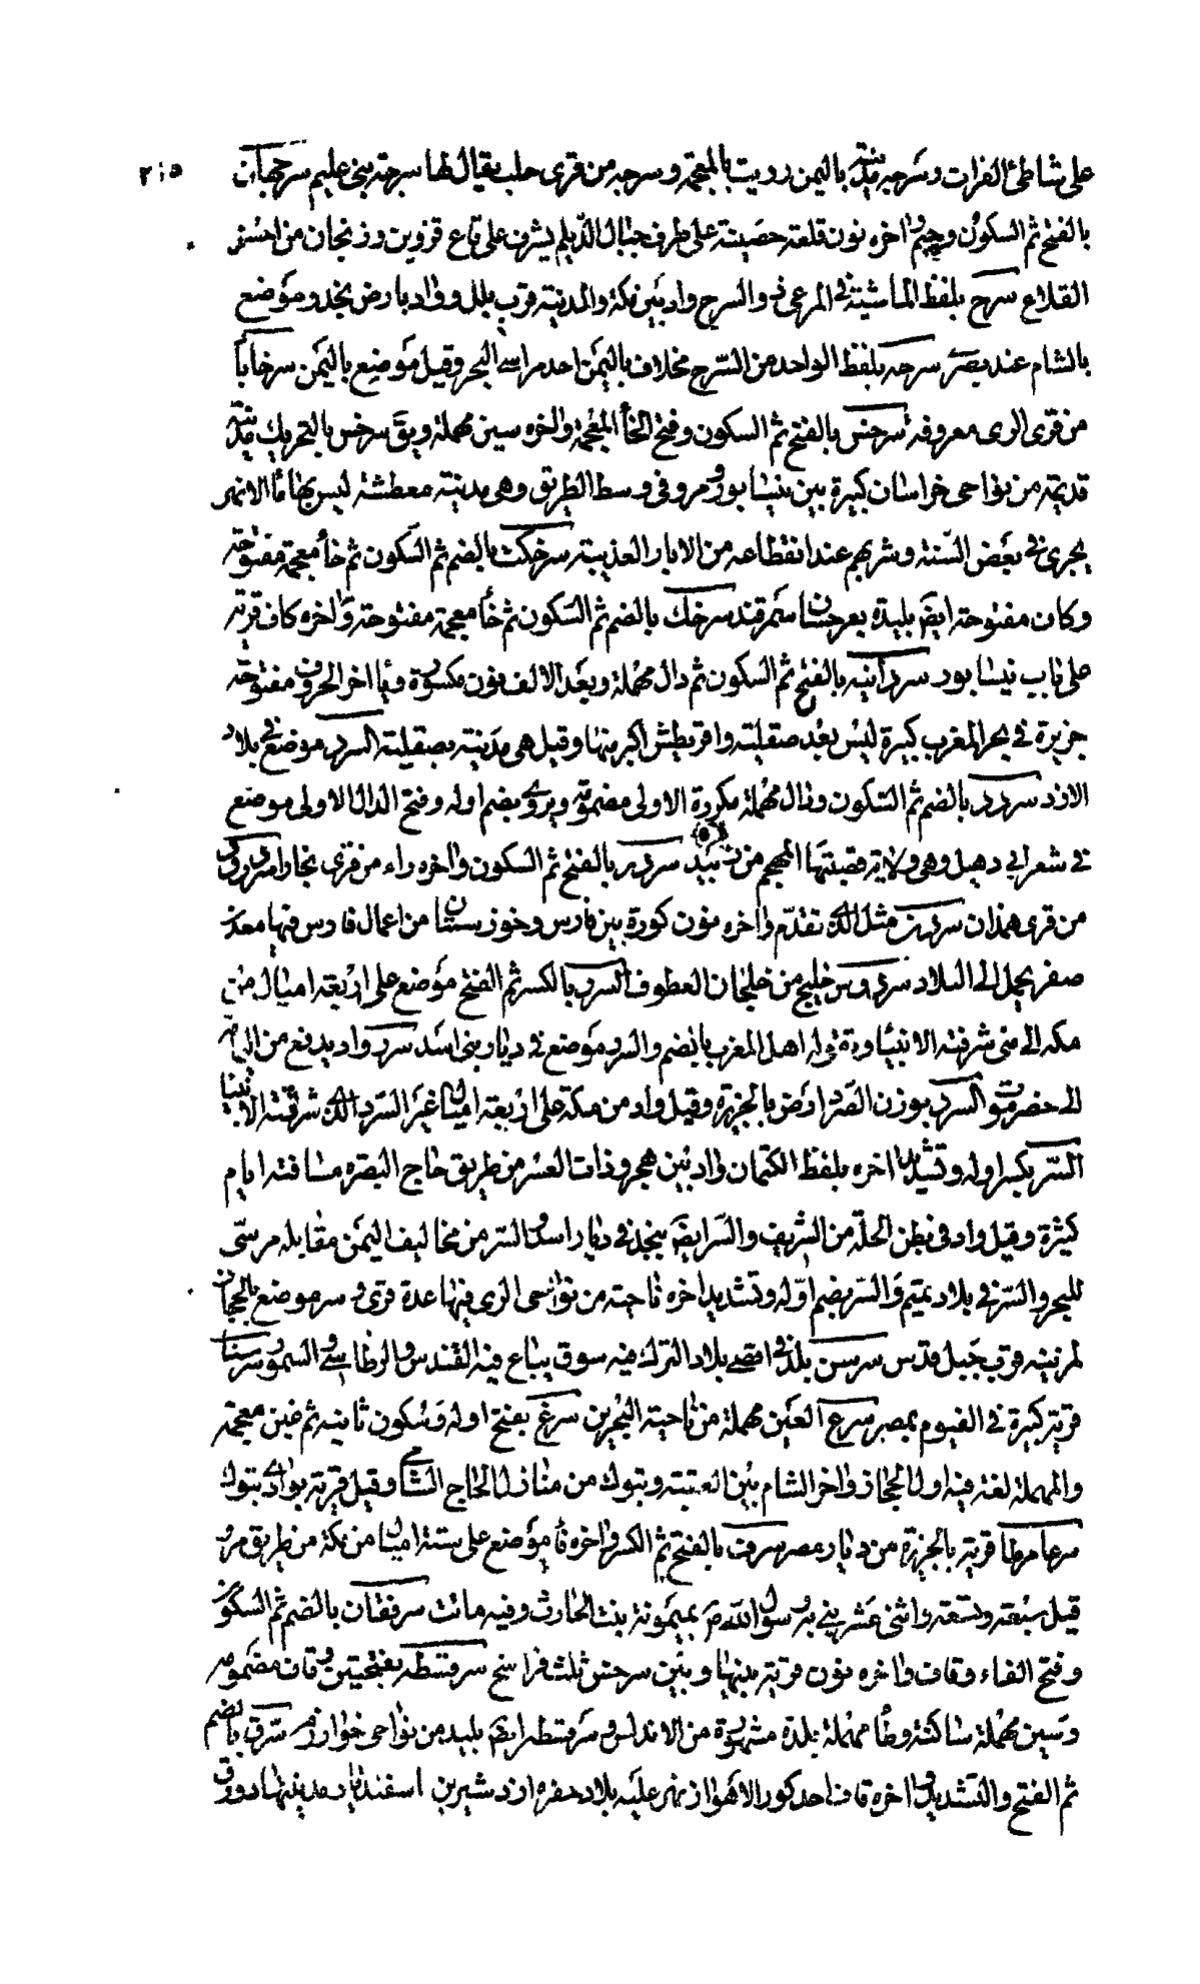 على شاطئ الفرات وسرجه مدينة باليمن رويت بالمعجمة وسرجه من قرى حلب يقال لها سرجة بنى عليم سرجهان
بالفتح ثم السكون وجيم واخره نون قلعة حصينة على طرف جبال الديلم يشرف على قاع قزوين وزنجان من احسن
القلاع سرح بلفظ الماشية في المرعى ذو السرح واد بين مكة والمدينة قرب بلل وواد بارض نجد وموضع
بالشام عند بصرى سرحه بلفظ الواحد من السرح مخلاف باليمن احد مراسى البحر وقيل موضع باليمن سرخاباد
من قرى الرى معروفه سرخس بالفتح ثم السكون وفتح الخأ المعجمة واخره سين مهملة ويق سرخس بالتحريك مدينة
قديمة من نواحى خراسان كبيرة بين نيسابور ومرو فى وسط الطريق وهى مدينة معطشة ليس بها مأ الا نهر
يجرى فى بعض السنة وشربهم عند انقطاعه من الابار العذيبة سرخكت بالضم ثم السكون ثم خأ معجمة مفتوحة
وكاف مفتوحة ايضا بليدة بغرجستان سمرقند سرخك بالضم ثم السكون ثم خأ معجمة مفتوحة واخره كاف قرية
على باب نيسابور سردانيه بالفتح ثم السكون ثم دال مهملة وبعد الالف نون مكسورة ويأ اخر الحروف مفتوحة
جزيرة في بحر المغرب كبيرة ليس بعد صقلية واقريطش اكبر منها وقيل هى مدينة بصقلية السرد موضع فى بلاد
الازد سردد بالضم ثم السكون ودال مهملة مكررة الاولى مضمومة ويروى بضم اوله وفتح الدال الاولى موضع
فى شعر ابى دهبل وهى ولاية قصبتها المهجم من زبيد سردر بالفتح ثم السكون واخره راء من قرى بخارا سردرود
من قرى همذان سردن مثل الذى تقدم واخره نون كورة بين فارس وخوزستان من اعمال فارس فيها معدن
صفر يحمل الى البلاد سردوس خليج من خلجان العطوف السرر بالكسر ثم الفتح موضع على اربعة اميال من
مكه الى منى شرفته الانبياء وقد يوله اهل المغرب بالضم والسرر موضع فى ديار بنى اسد سرر واد يدفع من اليمامة
الى حضرموت والسرر بوزن الصرد ارض بالجزيرة وقيل واد من مكة على اربعة اميال غير السرر الذى شرفته الانبيا
السر بكسر اوله وتشديد اخره بلفظ الكتمان واد بين هجر وذات العشر من طريق حاج البصره مسافته ايام
كثيرة وقيل واد فى بطن الحلة من الشريف والسر ايضا بنجد فى ديار اسد والسر من مخاليف اليمن مقابله مرسى
للبحر والسر فى بلاد تميم والسر بضم اوله وتشديد اخره ناحية من نواحى الرى فيها عدة قرى وسر موضع بالحجاز
لمزينه قرب جبل قدس سرسن بلد فى اقصى بلاد الترك فيه سوق يباع فيه القندس والبرطاسى والسمور سرسنا
قرية كبيرة فى الفيوم بمصر سرع العين مهملة من ناحية البحرين سرغ بفتح اوله وسكون ثانيه ثم غين معجمة
والمهملة لغة فيه اول الحجاز واخر الشام بين العتبة وتبوك من منازل الحاج الشامى وقيل قرية بوادى تبوك
سرعامرطا قرية بالجزيرة من ديار مضر سرف بالفتح ثم الكسر واخره فأ موضع على ستة اميال من مكة من طريق مرو
قيل سبعة وتسعة واثنى عشر بنى به رسول الله ص بميمونة بنت الحارث وفيه ماتت سرفقان بالضم ثم السكون
وفتح الفاء وقاف واخره نون قرية بينها وبين سرخس ثلث فراسخ سرقسطه بفتحتين وقاف مضمومه
وسين مهملة ساكنة وطأ مهملة بلدة مشهورة من الاندلس وسرقسطه ايضا بليد من نواحى خوارزم سرق بالضم
ثم الفتح والتشديد واخره قاف احد كور الاهواز نهر عليه بلاد حفره اردشير بن اسفنديار مدينتها دورق